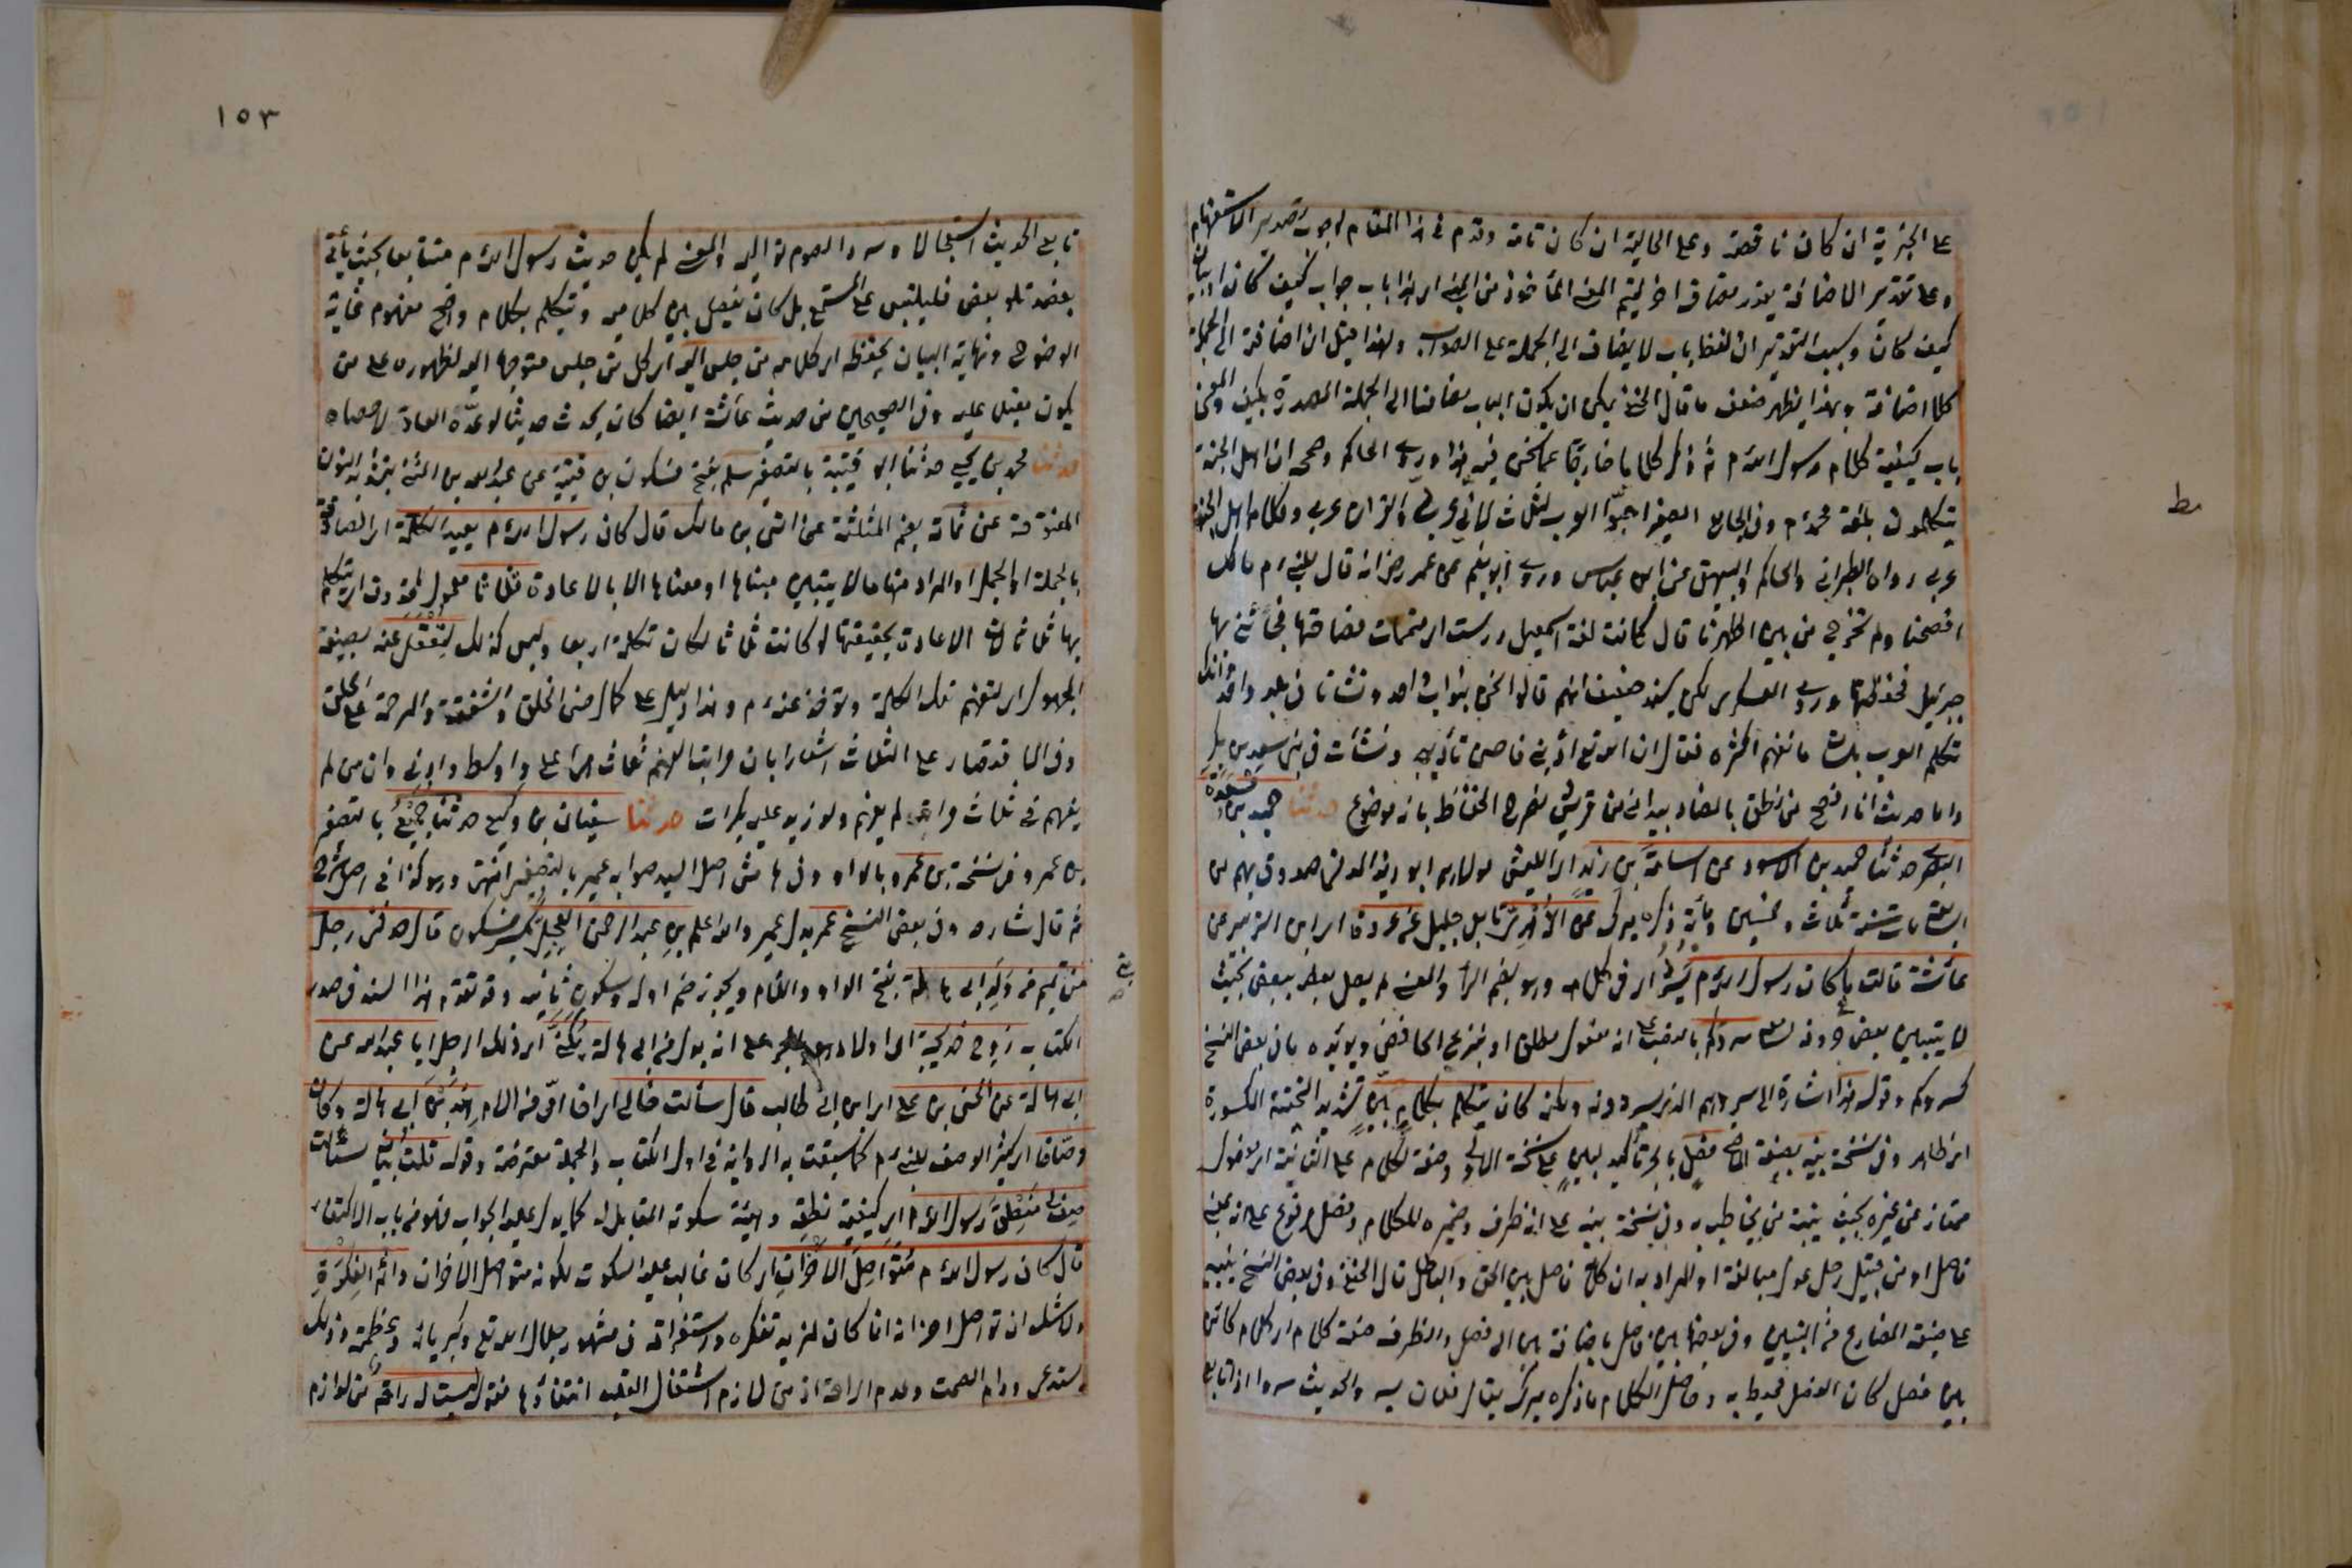 على الخبرية ان كان ناقصة وعلى الحالية ان كان تامة وقدم في هذا المقام لوجوب تصدير الاستفهام
وعلى تقدير الاضافة يقدر مضاف اخر ليتم المعنى المأخوذ من المبنى اي هذا باب جواب كيف كان او بيان
كيف كان وسبب التقدير ان لفظ باب لا يضاف الى الجملة على الصواب ولهذا قيل ان اضافته الى الجملة
كلا اضافة وبهذا يظهر ضعف ما قال الحنفي يمكن ان يكون الباب مضافا الى الجملة المصدرة بكيف والمعنى
باب كيفية كلام رسول الله م ثم ذكر كلاما خارقا عما نحن فيه هذا وروى الحاكم وصححه ان اهل الجنة
يتكلمون بلغة محمد م وفي الجامع الصغير احبوا العرب لثلاث لاني عربي والقران عربي وكلام اهل الجنة
عربي رواه الطبراني والحاكم والبيهقي عن ابن عباس وروى ابو نعيم عن عمر رض انه قال للنبي م ما لك
افصحنا ولم تخرج من بين اظهرنا قال كانت لغة اسمعيل درست اي متممات فصاحتها فجائني بها
جبرئيل فحفظتها وروى العسكري لكن بسند ضعيف انهم قالوا نحن بنو اب واحد ونشأنا في بلد واحد وانك
تكلم العرب بلسان ما نفهم اكثره فقال ان الله تع ادبني فاحسن تأديبي ونشأت في بني سعد بن بكر
واما حديث انا افصح من نطق بالضاد بيد اني من قريش فصرح الحفاظ بانه موضوع حدثنا حميد بن مسعدة
البصري حدثنا حميد بن الاسود عن اسامة بن زيد اي الليثي مولاهم ابو زيد المدني صدوق يهم من
السابعة مات سنة ثلاث وخمسين ومائة ذكره ميرك عن الزهري تابعي جليل عن عروة اي ابن الزبير عن
عائشة قالت ما كان رسول الله م يسرد اي في كلامه وهو بضم الراء والمعنى لم يصل بعضه ببعض بحيث
لا يتبين بعض حروفه لسامعه سردكم بالنصب على انه مفعول مطلق او بنزع الخافض ويؤيده ما في بعض النسخ
كسردكم وقوله هذا اشارة الى سردهم الذي يسردونه ولكنه كان يتكلم بكلام بين بتشديد التحتية المكسورة
اي ظاهر وفي نسخة بينه بصيغة الماضي فصل بالجر تأكيد لبين على نسخة الاولى وصفة لكلام على الثانية اي مفصول
ممتاز عن غيره بحيث يبينه من يخاطب به وفي نسخة بينه على انه ظرف وضميره للكلام وفصل مرفوع على انه بمعنى
فاصل او من قبيل رجل عدل مبالغة او المراد به ان كلامه فاصل بين الحق والباطل قال الحنفي وفي بعض النسخ يبينه
على صيغة المضارع من التبيين وفي بعضها بين فاصل باضافة بين الى فصل والظرف صفة كلام اي كلام كائن
بين فصل كان الفصل محيط به وحاصل الكلام ما ذكره ميرك يقال فلان يسرد الحديث سردا اذا تابع
مط
١٥٣
تابع الحديث استعجالا وسرد الصوم تواليه والمعنى لم يكن حديث رسول الله م متتابعا بحيث يأتي
بعضه تلو بعض فيلتبس على المستمع بل كان يفصل بين كلاميه ويتكلم بكلام واضح مفهوم غاية
الوضوح ونهاية البيان يحفظه اي كلامه من جلس اليه اي كل من جلس متوجها اليه لظهوره على من
يكون مقبل عليه وفي الصحيحين من حديث عائشة ايضا كان يحدث حديثا لو عده العاد لاحصاه
حدثنا محمد بن يحيى حدثنا ابو قتيبة بالتصغير سلم بفتح فسكون بن قتيبة عن عبد الله بن المثنى بتشديد النون
المفتوحة عن ثمامة بضم المثلثة عن انس بن مالك قال كان رسول الله م يعيد الكلمة اي الصادقة
بالجملة او الجمل او المراد منها ما لا يتبين مبناها او معناها الا بالاعادة ثلاثا معمول لمحذوف اي يتكلم
بها ثلاثا لان الاعادة بحقيقتها لو كانت ثلاثا لكان تكلمه اربعا وليس كذلك لتعقل عنه بصيغة
المجهول اي لتفهم تلك الكلمة وتؤخذ عنه م وهذا دليل على كمال حسن الخلق والشفقة والمرحمة على الخلق
وفي الاقتصار على الثلاث اشعار بان مراتب الفهم ثلاث اعلى واوسط وادنى وان من لم
يفهم في ثلاث مراتب لم يفهم ولو زيد عليه بكرات حدثنا سفيان بن وكيع حدثنا جميع بالتصغير
بن عمر وفي نسخة بن عمرو بالواو وفي هامش اصل السيد صوابه عمير بالتصغير انتهى وهو كذا في اصل شرح
ثم قال شارح وفي بعض النسخ عمر بدل عمير والله اعلم بن عبد الرحمن العجلي بكسر فسكون قال حدثني رجل
من بني تميم من ولد ابي هالة بفتح الواو واللام ويجوز ضم اوله وسكون ثانيه وقد تقدم هذا السند في صدر
الكتاب زوج خديجة اي اولا وهو بالجر على انه بدل من ابي هالة يكنى اي ذلك الرجل ابا عبد الله عن
ابي هالة عن الحسن بن علي اي ابن ابي طالب قال سألت خالي اي اخا امي من الام هند بن ابي هالة وكان
وصافا اي كثير الوصف للنبي م كما سبقت به الرواية في اول الكتاب والجملة معترضة وقوله قلت بيان سألت
صف لي منطق رسول الله م اي كيفية نطقه وهيئة سكوته المقابل له كما يدل عليه الجواب فهو من باب الاكتفاء
قال كان رسول الله م متواصل الاحزان اي كان غالب عليه السكوت لكونه متواصل الاحزان دائم الفكرة
ولا شك ان تواصل احزانه انما كان لمزيد تفكره واستغراقه في شهود جلال الله تع وكبريائه وعظمته وذلك
يستدعي دوام الصمت وعدم الراحة اذ من لازم اشتغال القلب انتفاؤها فقوله ليست له راحة من لوازم